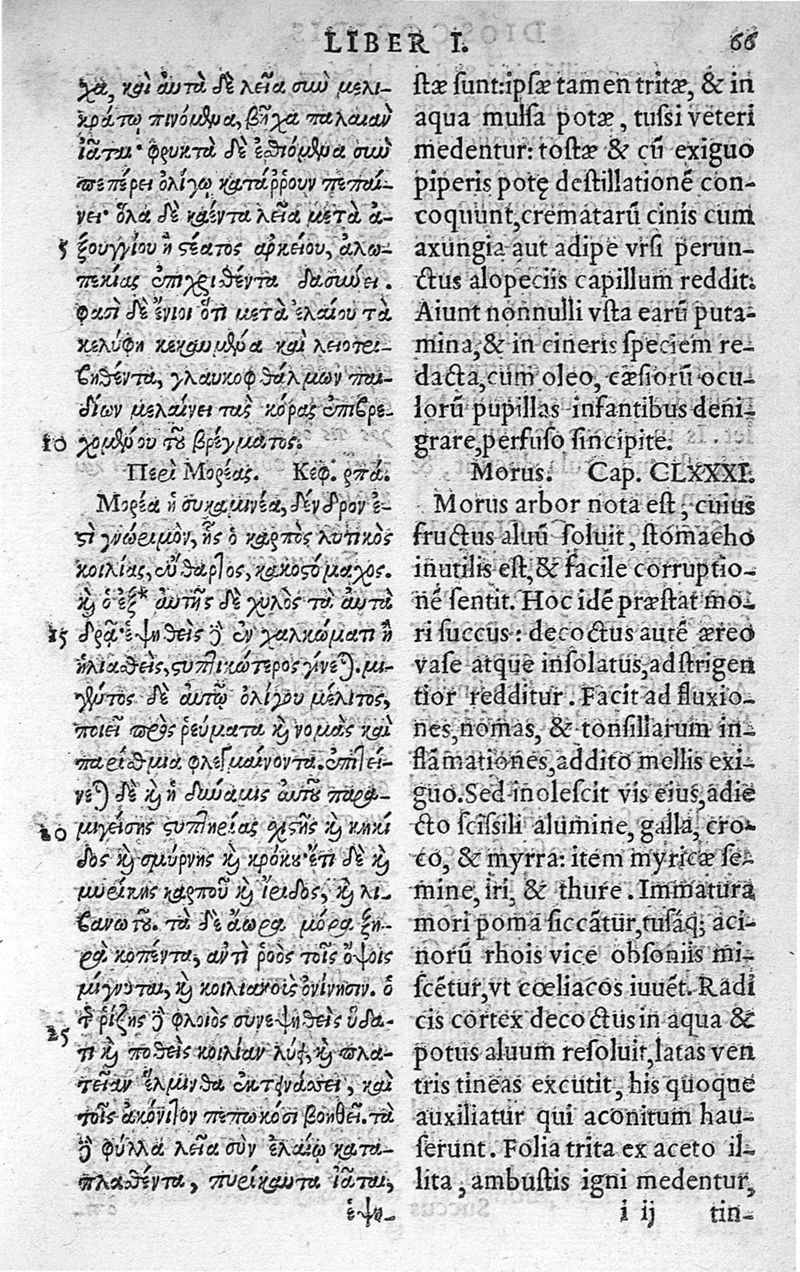 LIBER I. 66
χα, καὶ αὐτὰ δὲ λεῖα σὺν μελι-
κράτῳ πινόμενα, βῆχα παλαιὰν
ἰᾶται· φρυκτὰ δὲ ἐσθιόμενα σὺν
πεπέρει ὀλίγῳ κατάῤῥουν πεπαί-
νει· ὅλα δὲ καέντα λεῖα μετὰ ἀ-
5 ξουγγίου ἢ στέατος ἀρκείου, ἀλω-
πεκίας ἐπιχρισθέντα δασύνει.
φασὶ δὲ ἔνιοι ὅτι μετὰ ἐλαίου τὰ
κελύφη κεκαυμένα καὶ λειοτρι-
βηθέντα, γλαυκοφθάλμων παι-
δίων μελαίνει τὰς κόρας ἐπιβρε-
10 χομένου τοῦ βρέγματος.
Περὶ Μορέας. Κεφ. ρπά.
Μορέα ἢ συκαμινέα, δένδρον ἐ-
στὶ γνώριμον, ἧς ὁ καρπὸς λυτικὸς
κοιλίας, εὔφθαρτος, κακοστόμαχος.
καὶ ὁ ἐξ* αὐτῆς δὲ χυλὸς τὰ αὐτὰ
15 δρᾷ· ἑψηθεὶς δὲ ἐν χαλκώματι ἢ
ἡλιασθεὶς, στυπτικώτερος γίνεται. μι-
γέντος δὲ αὐτῷ ὀλίγου μέλιτος,
ποιεῖ πρὸς ῥεύματα καὶ νομὰς καὶ
παρίσθμια φλεγμαίνοντα. ἐπιτεί-
νεται δὲ καὶ ἡ δύναμις αὐτοῦ παρα-
20 μιγείσης στυπτηρίας σχιστῆς καὶ κηκί
δος καὶ σμύρνης καὶ κρόκου· ἔτι δὲ καὶ
μυρίκης καρποῦ καὶ ἴριδος, καὶ λι-
βανωτοῦ. τὰ δὲ ἄωρα μόρα ξη-
ρὰ κοπέντα, ἀντὶ ῥοὸς τοῖς ὄψοις
μίγνυται, καὶ κοιλιακοὺς ὀνίνησιν. ὁ
τῆς ῥίζης δὲ φλοιὸς συνεψηθεὶς ὕδα-
25 τι καὶ ποθεὶς κοιλίαν λύει, καὶ πλα-
τεῖαν ἕλμινθα ἐκτινάσσει, καὶ
τοῖς ἀκόνιτον πεπωκόσι βοηθεῖ. τὰ
δὲ φύλλα λεῖα σὺν ἐλαίῳ κατα-
πλασθέντα, πυρίκαυτα ἰᾶται,
ἑψη-
stæ sunt: ipsæ tamen tritæ, & in
aqua mulsa potæ, tussi veteri
medentur: tostæ & cū exiguo
piperis potę destillationē con-
coquunt, crematarū cinis cum
axungia aut adipe vrsi perun-
ctus alopeciis capillum reddit.
Aiunt nonnulli vsta earū puta-
mina, & in cineris speciem re-
dacta, cum oleo, cæsiorū ocu-
lorū pupillas infantibus deni-
grare, perfuso sincipite.
Morus. Cap. CLXXXI.
Morus arbor nota est, cuius
fructus aluū soluit, stomacho
inutilis est, & facile corruptio-
nē sentit. Hoc idē præstat mo-
ri succus: decoctus autē æreo
vase atque insolatus, adstrigen
tior redditur. Facit ad fluxio-
nes, nomas, & tonsillarum in-
flāmationes, addito mellis exi-
guo. Sed inolescit vis eius, adie
cto scissili alumine, galla, cro-
co, & myrra: item myricæ se-
mine, iri, & thure. Immatura
mori poma siccātur, tusáq; aci-
norū rhois vice obsoniis mi-
scētur, vt cœliacos iuuēt. Radi
cis cortex decoctus in aqua &
potus aluum resoluit, latas ven
tris tineas excutit, his quoque
auxiliatur qui aconitum hau-
serunt. Folia trita ex aceto il-
lita, ambustis igni medentur,
i ij tin-